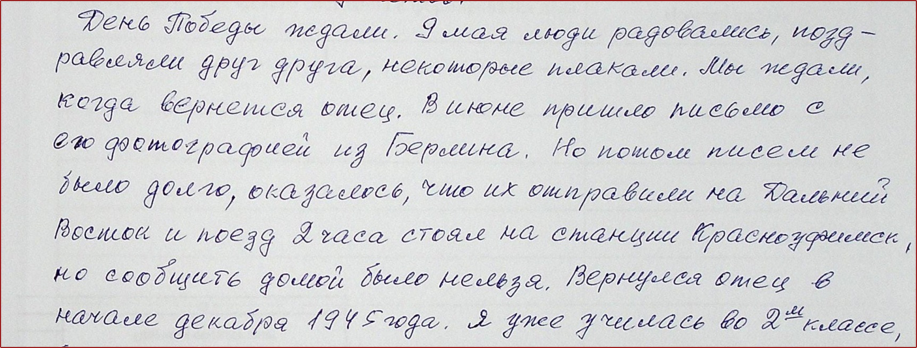 День Победы ждали. 9 мая люди радовались, позд-
равляли друг друга, некоторые плакали. Мы ждали,
когда вернется отец. В июне пришло письмо с
его фотографией из Берлина. Но потом писем не
было долго, оказалось, что их отправили на Дальний
Восток и поезд 2 часа стоял на станции Красноуфимск,
но сообщить домой было нельзя. Вернулся отец в
начале декабря 1945 года. Я уже училась во 2м классе,